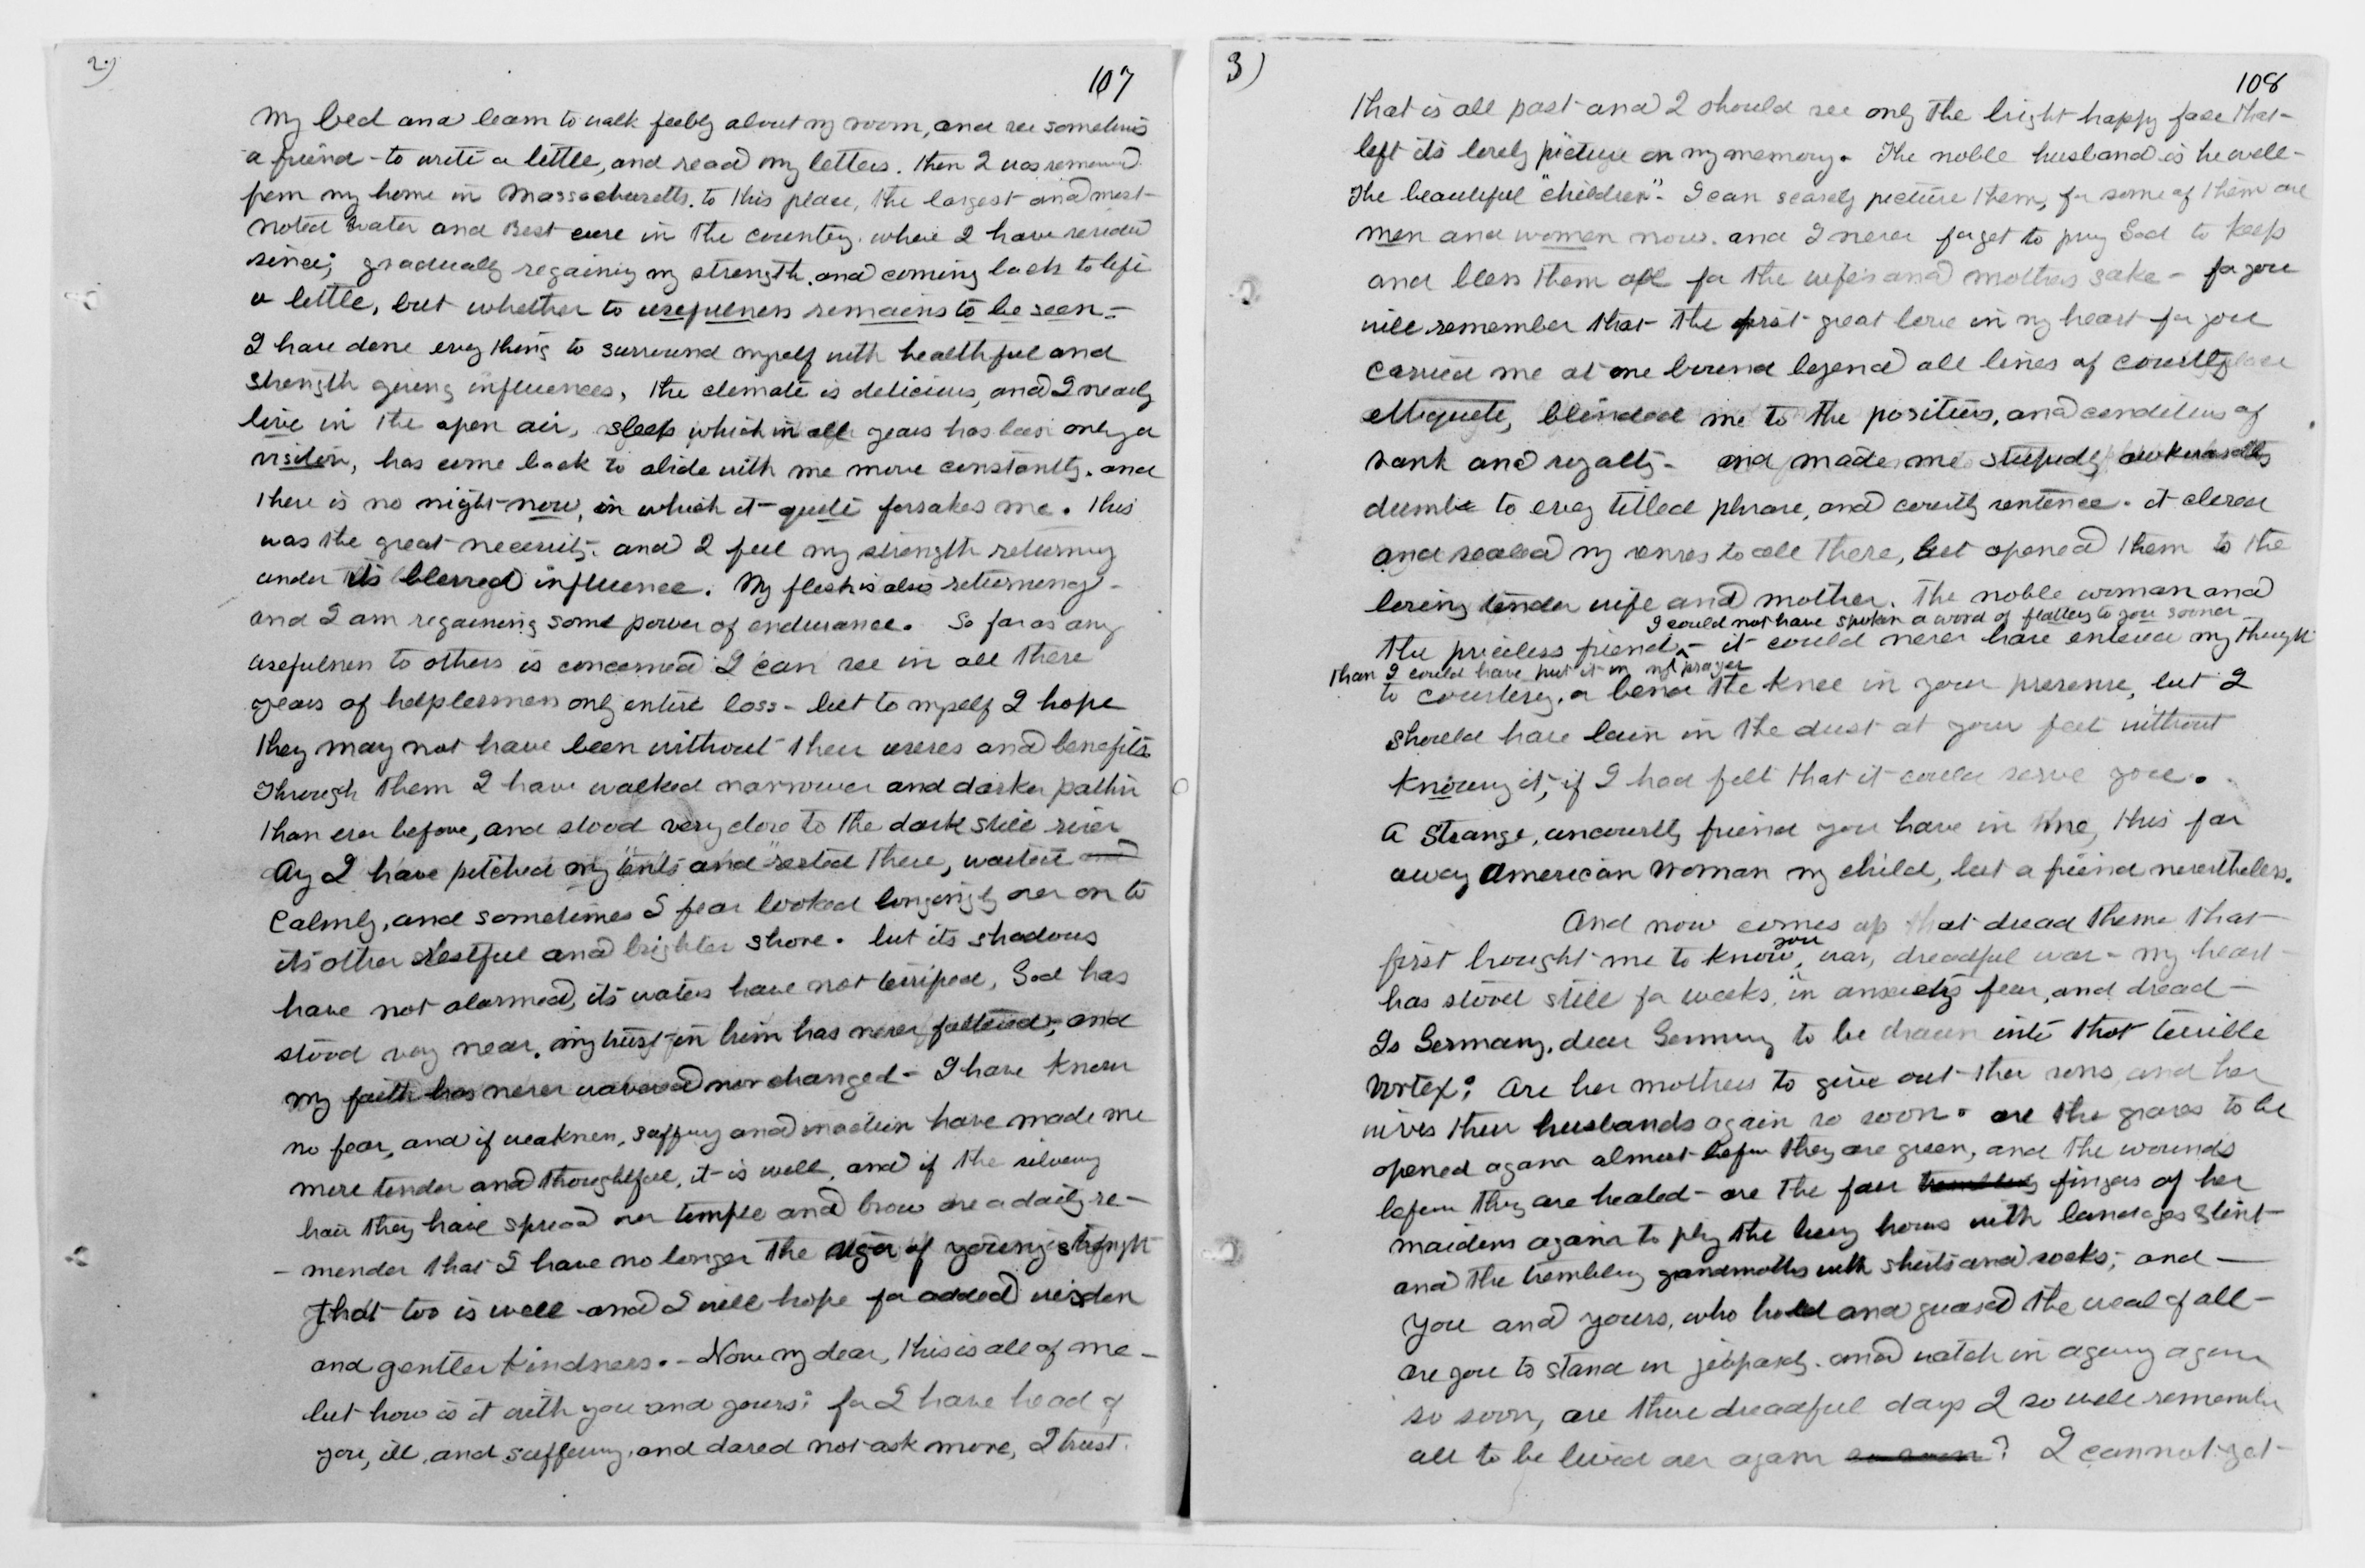 2.)
107
my bed and learn to walk feebly about my room, and see sometimes
a friend - to write a little, and read my letters. Then I was removed
from my home in Massachusetts. to this place, the largest and most
noted Water and Rest cure in the country. where I have resided
since; gradually regaining my strength. and coming back to life
a little, but whether to usefulness remains to be seen -
I have done every thing to surround myself with healthful and
strength giving influences, the climate is delicious, and I nearly
live in the open air, sleep which in all years has been only a
visitor, has come back to abide with me more constantly. and
there is no night now, in which it quite forsakes me. This
was the great necessity. and I feel my strength returning
under its blessed influence. My flesh is also returning -
and I am regaining some power of endurance. So far as any
usefulness to others is concerned I can see in all these
years of helplessness only entire loss - but to myself I hope
they may not have been without their uses and benefits
Through them I have walked narrower and darker paths
than ever before, and stood very close to the dark still river
Ay I have pitched my "tents and" rested there, waited and
calmly, and sometimes I fear looked longingly over on to
its other restful and brighter shore. but its shadows
have not alarmed, its waters have not terrified, God has
stood very near. my trust in him has never faltered, and
my faith has never wavered nor changed - I have known
no fear, and if weakness, suffering and inaction have made me
more tender and thoughtful, it is well, and if the silvery
hair they have spread over temple and brow are a daily re-
- minder that I have no longer the vigor of young strength
that too is well and I will hope for added wisdom
and gentler kindness. - Now my dear, this is all of me -
but how is it with you and yours? for I have heard of
you, ill, and suffering, and dared not ask more, I trust.
3)
108
that is all past and I should see only the bright happy face that
left its lovely picture on my memory. The noble husband is he well -
The beautiful "children". I can scarcely picture them, for some of them are
men and women now. and I never forget to pray God to keep
and bless them all for the wife's and mothers sake - for you
will remember that the first great love in my heart for you
carried me at one bound beyond all lines of courtly
etiquete, blinded me to the positions, and conditions of
rank and royalty - and made me stupidly awkwardly
dumb to every titled phrase, and courtly sentence. it closed
and sealed my senses to all these, but opened them to the
loving tender wife and mother. The noble woman and
I could not have spoken a word of flattery to you sooner
the priceless friend - it could never have entered my thought
than I could have put it in my prayer
to courtesy, or bend the knee in your presence, but I
should have lain in the dust at your feet without
knowing it, if I had felt that it could serve you.
A strange, uncourtly friend you have in me, this far
away American woman my child, but a friend nevertheless.
And now comes up that dread theme that
first brought me to know you, war, dreadful war - my heart
has stood still for weeks, in anxiety fear, and dread -
Is Germany, dear Germany to be drawn into that terrible
vortex? Are her mothers to give out their sons and her
wives their husbands again so soon. are the graves to be
opened again almost before they are green, and the wounds
before they are healed - are the fair trembling fingers of her
maidens again to ply the busy hours with bandages & lint
and the trembling grandmothers with shirts and socks; and -
You and yours, who hold and guard the weal of all -
are you to stand in jeopardy. and watch in agony again
so soon, are those dreadful days I so well remember
all to be lived over again so soon? I cannot get